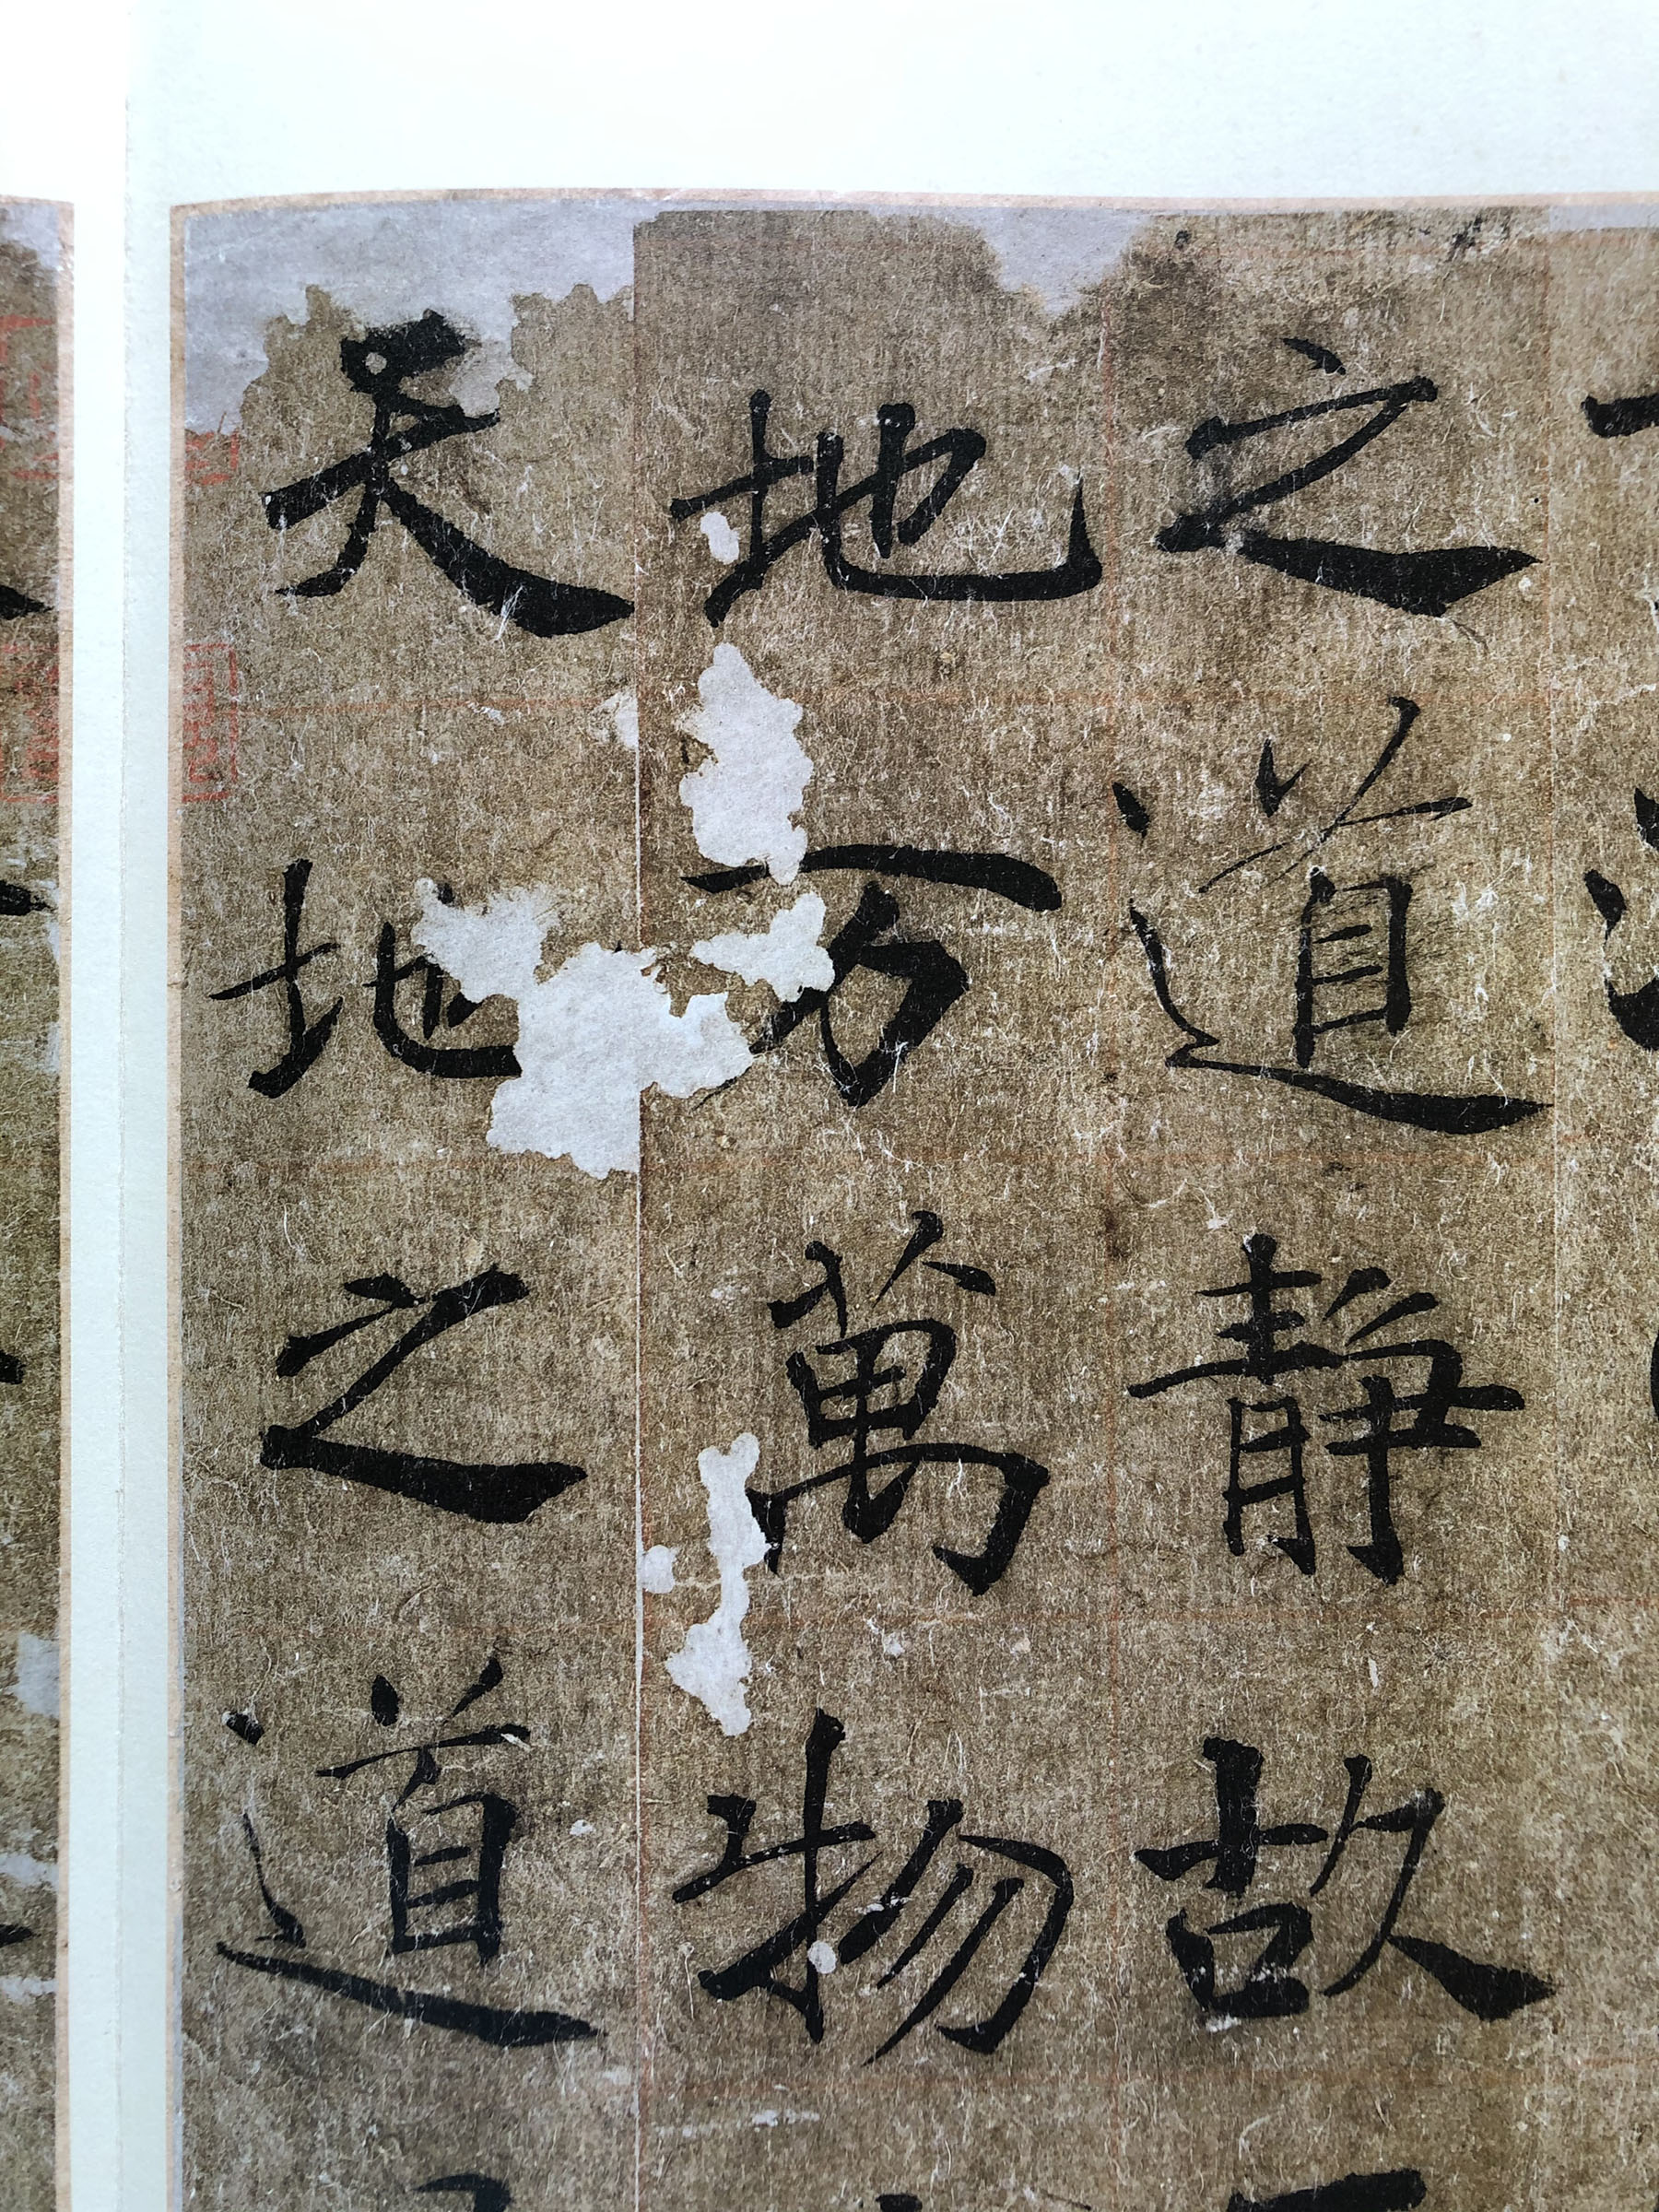 之道静故
地万萬物
天地之道